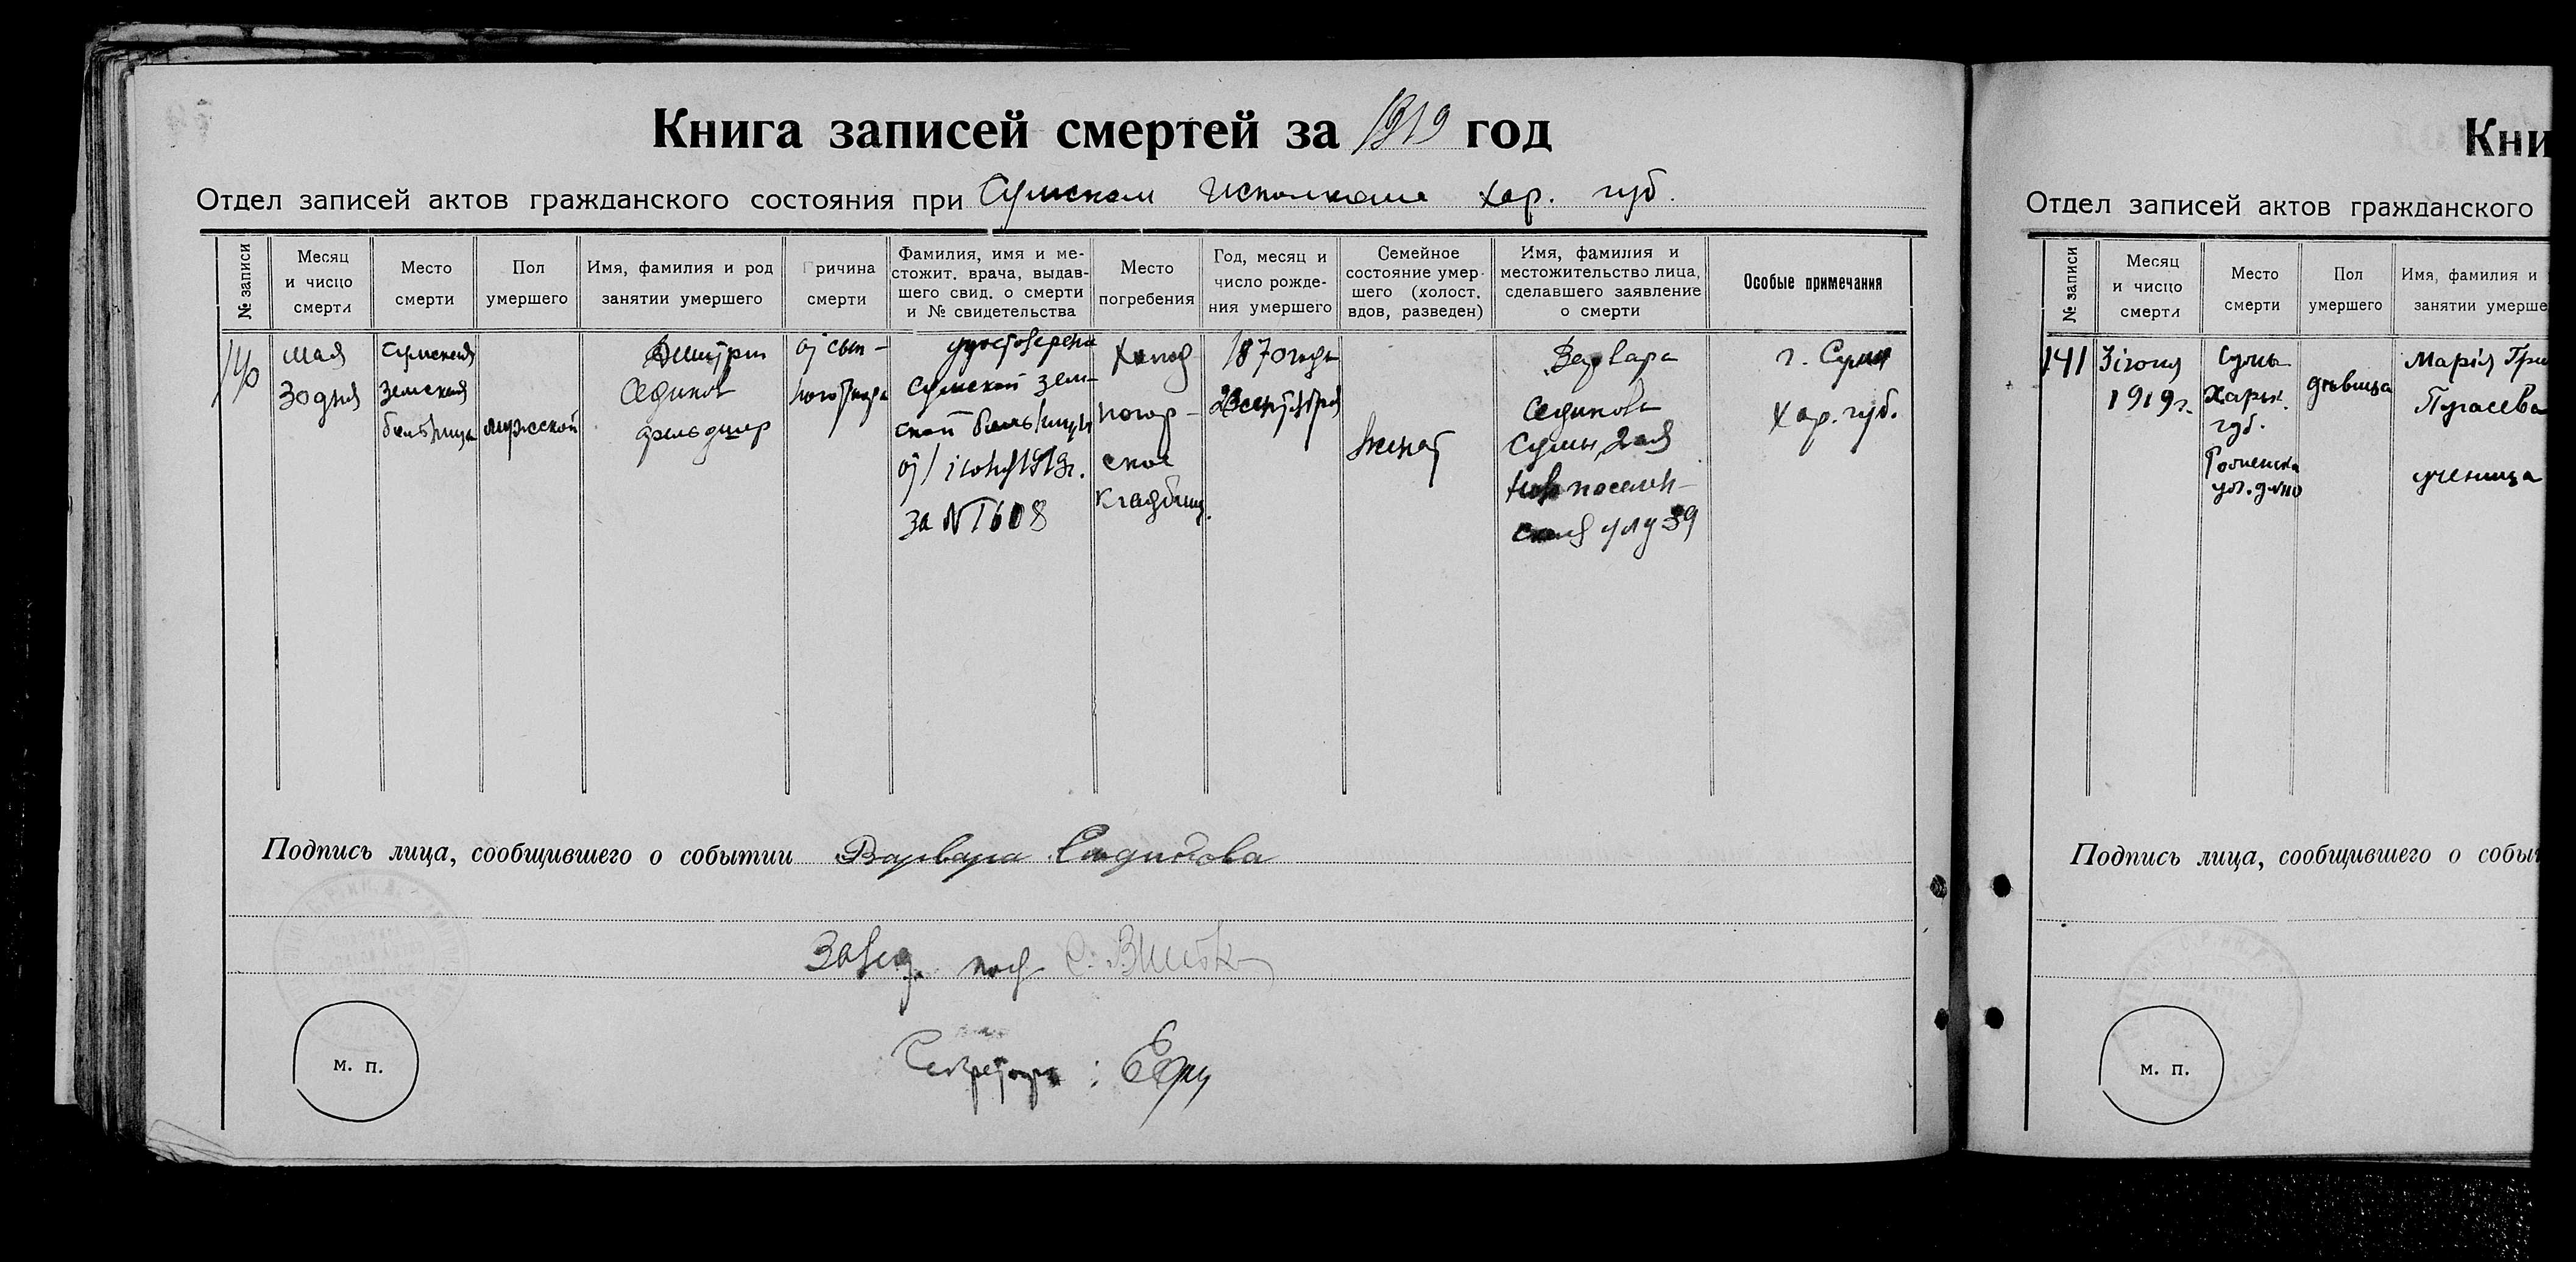 Книга записей смертей за 1919 год
Отдел записей актов гражданского состояния при Сумском Исполкоме Хар. губ.
№ записи
Месяц
и число
смерти
Место
смерти
Пол
умершего
Имя, фамилия и род
занятии умершего
Причина
смерти
Фамилия, имя и ме-
стожит. врача, выдав-
шего свид. о смерти
и № свидетельства
Место
погребения
Год, месяц и
число рожде-
ния умершего
Семейное
состояние умер-
шего (холост,
вдов, разведен)
Имя, фамилия и
местожительство лица,
сделавшего заявление
о смерти
Особые примечания
140
мая
30 дня
Сумская
Земская
больница
мужской
Дмитрий
Садиков
фельдшер
от сып-
ного тифа
удостоверена
Сумской зем-
ской больницы
от 1 июня 1919 г.
за № 1608
Холод
ногор-
ское
кладбищ.
1870 года
23 сентября
женат
Варвара
Садикова
Сумы, 2ая
Ново поселен-
ская ул 39
г. Сумы
Хар. губ.
Подпись лица, сообщившего о событии Варвара Садикова
Завед.
Секретарь:
м. п.
Кни
Отдел записей актов гражданского
№ записи
Месяц
и число
смерти
Место
смерти
Пол
умершего
Имя, фамилия и
занятии умерше
141
3 июня
1919 г.
Сумы
Харьк.
губ.
дѣвица
Марія Гри
Пугасева
ученица
Подпись лица, сообщившего о событ
м. п.